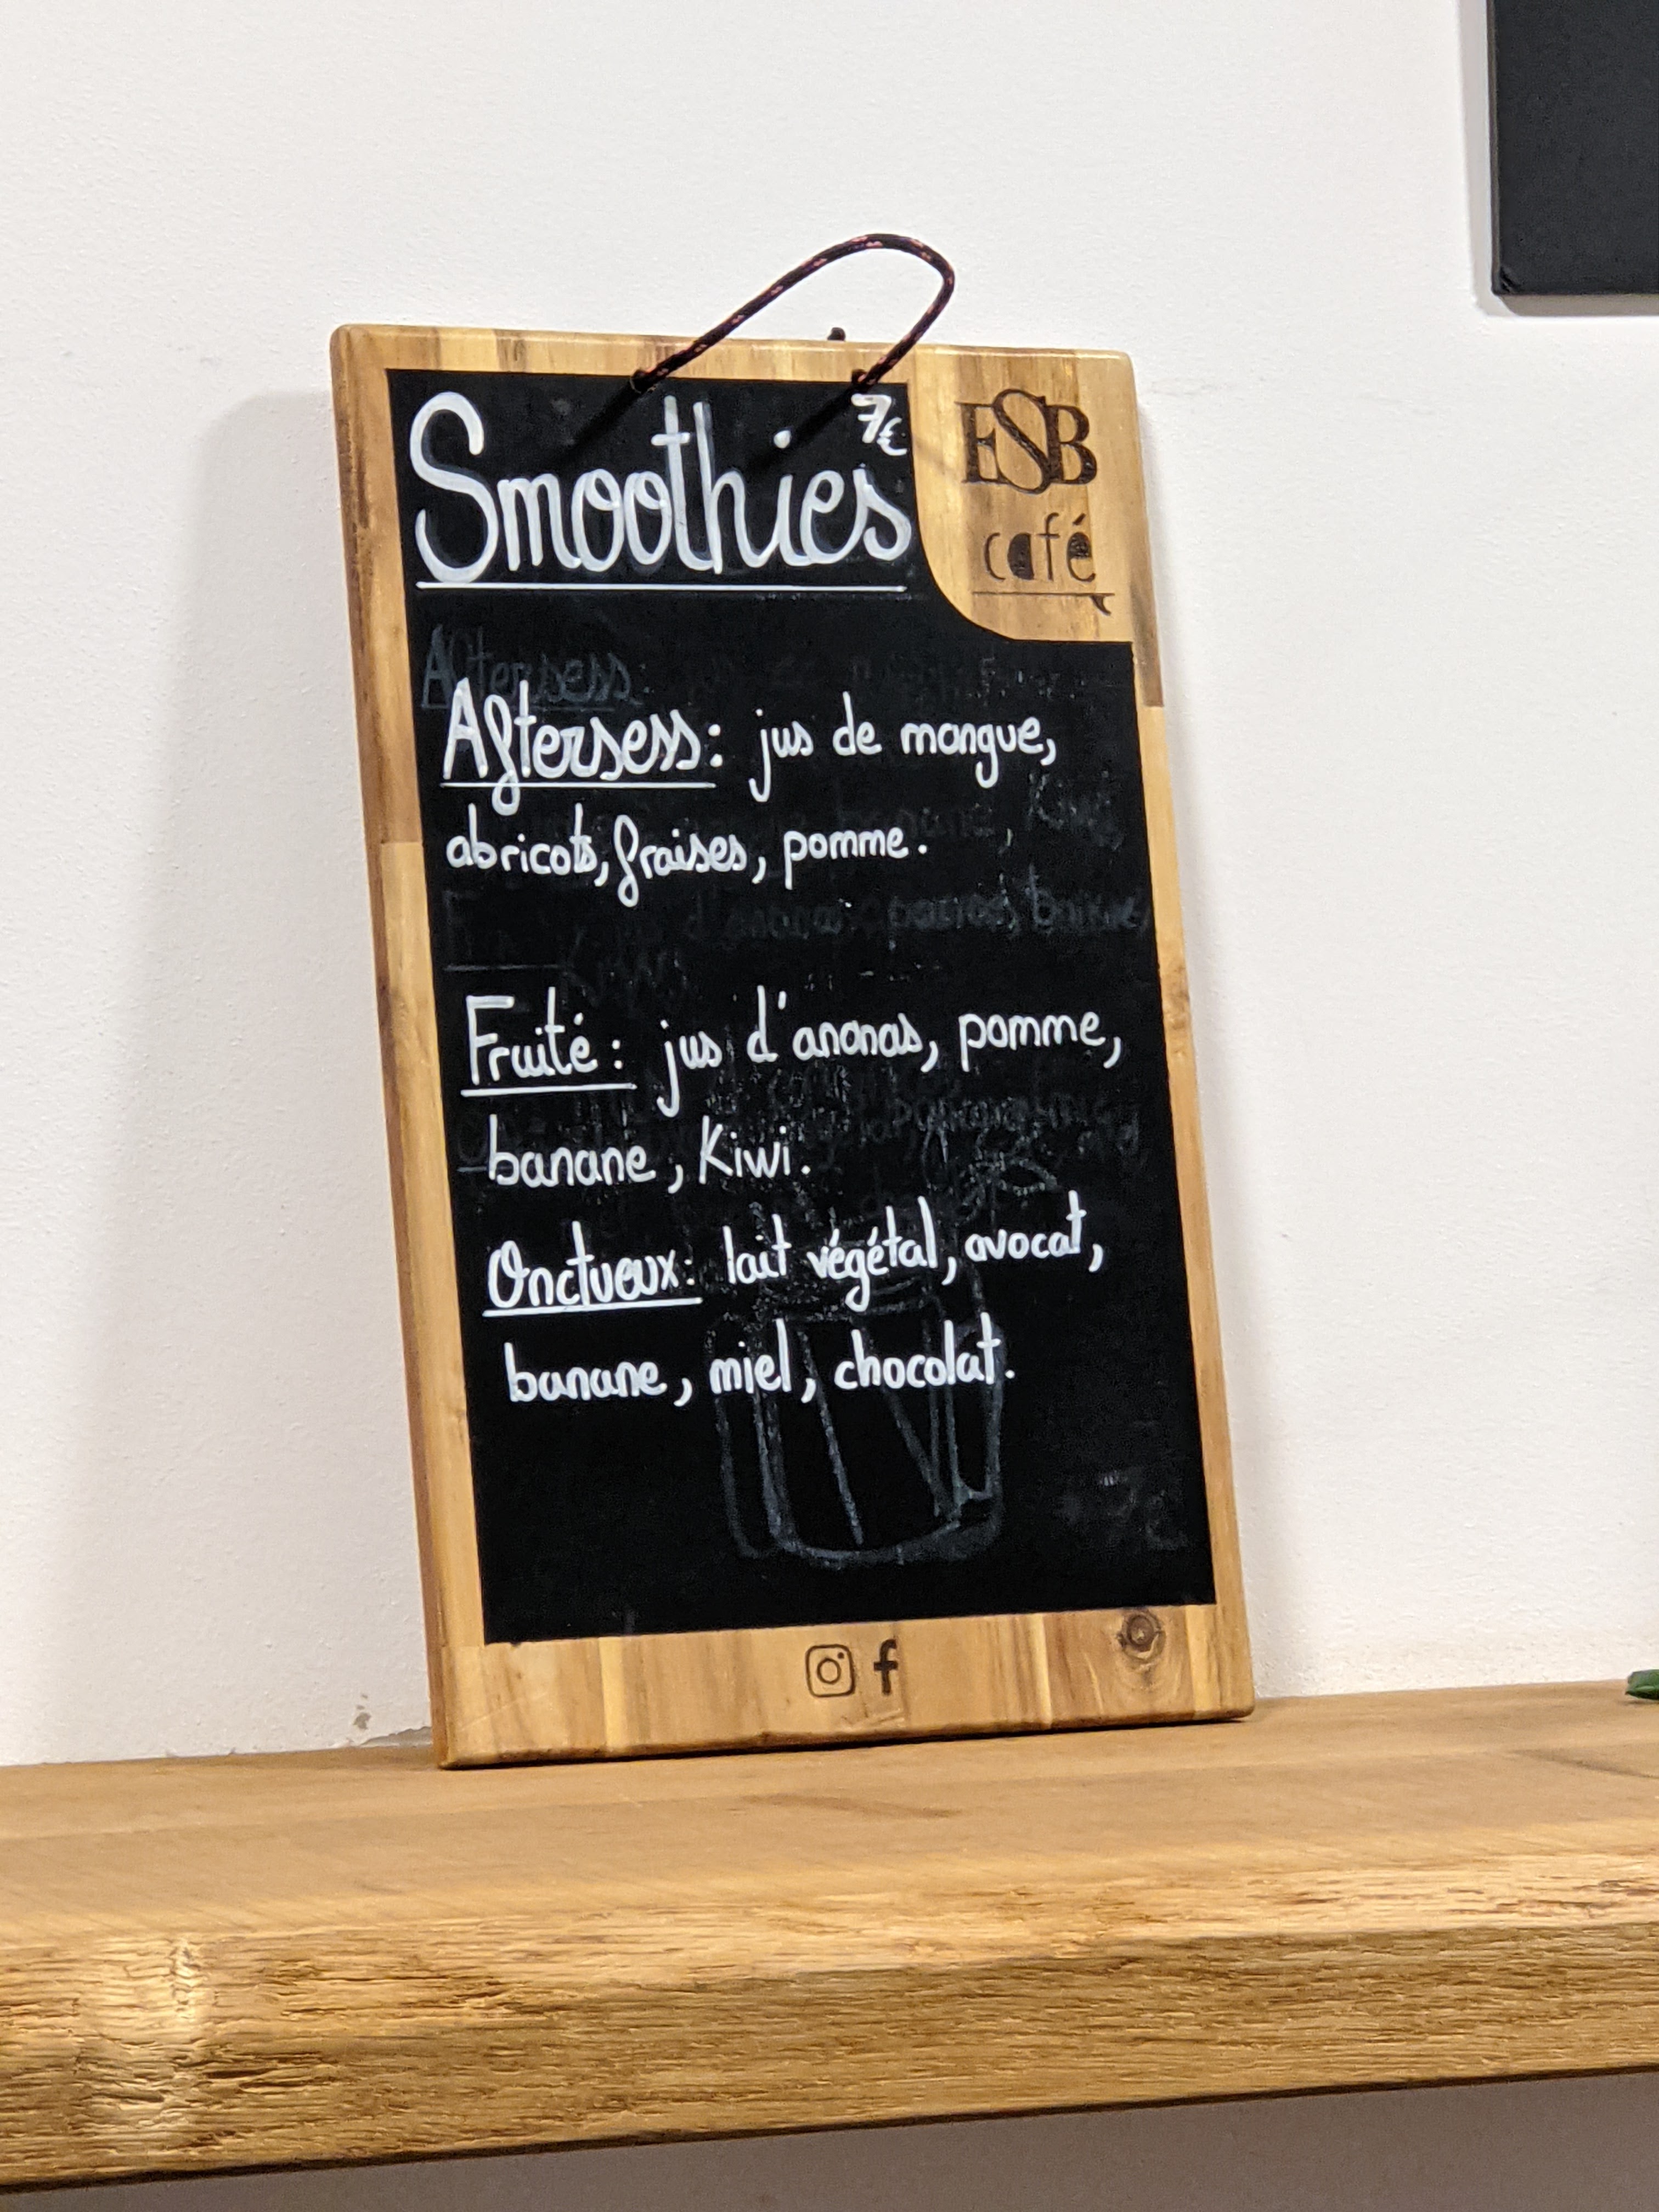 Smoothies 7€
ESB
café
Aftersess
Aftersess : jus de mangue,
abricots, fraises, pomme.
Fruité : jus d'ananas, pomme,
banane, Kiwi.
Onctueux : lait végétal, avocat,
banane, miel, chocolat.